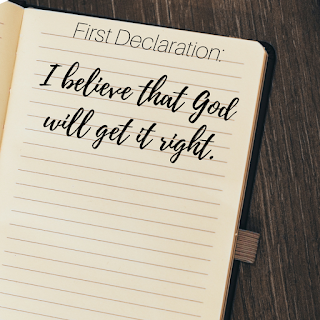 First Declaration:
I believe that God
will get it right.